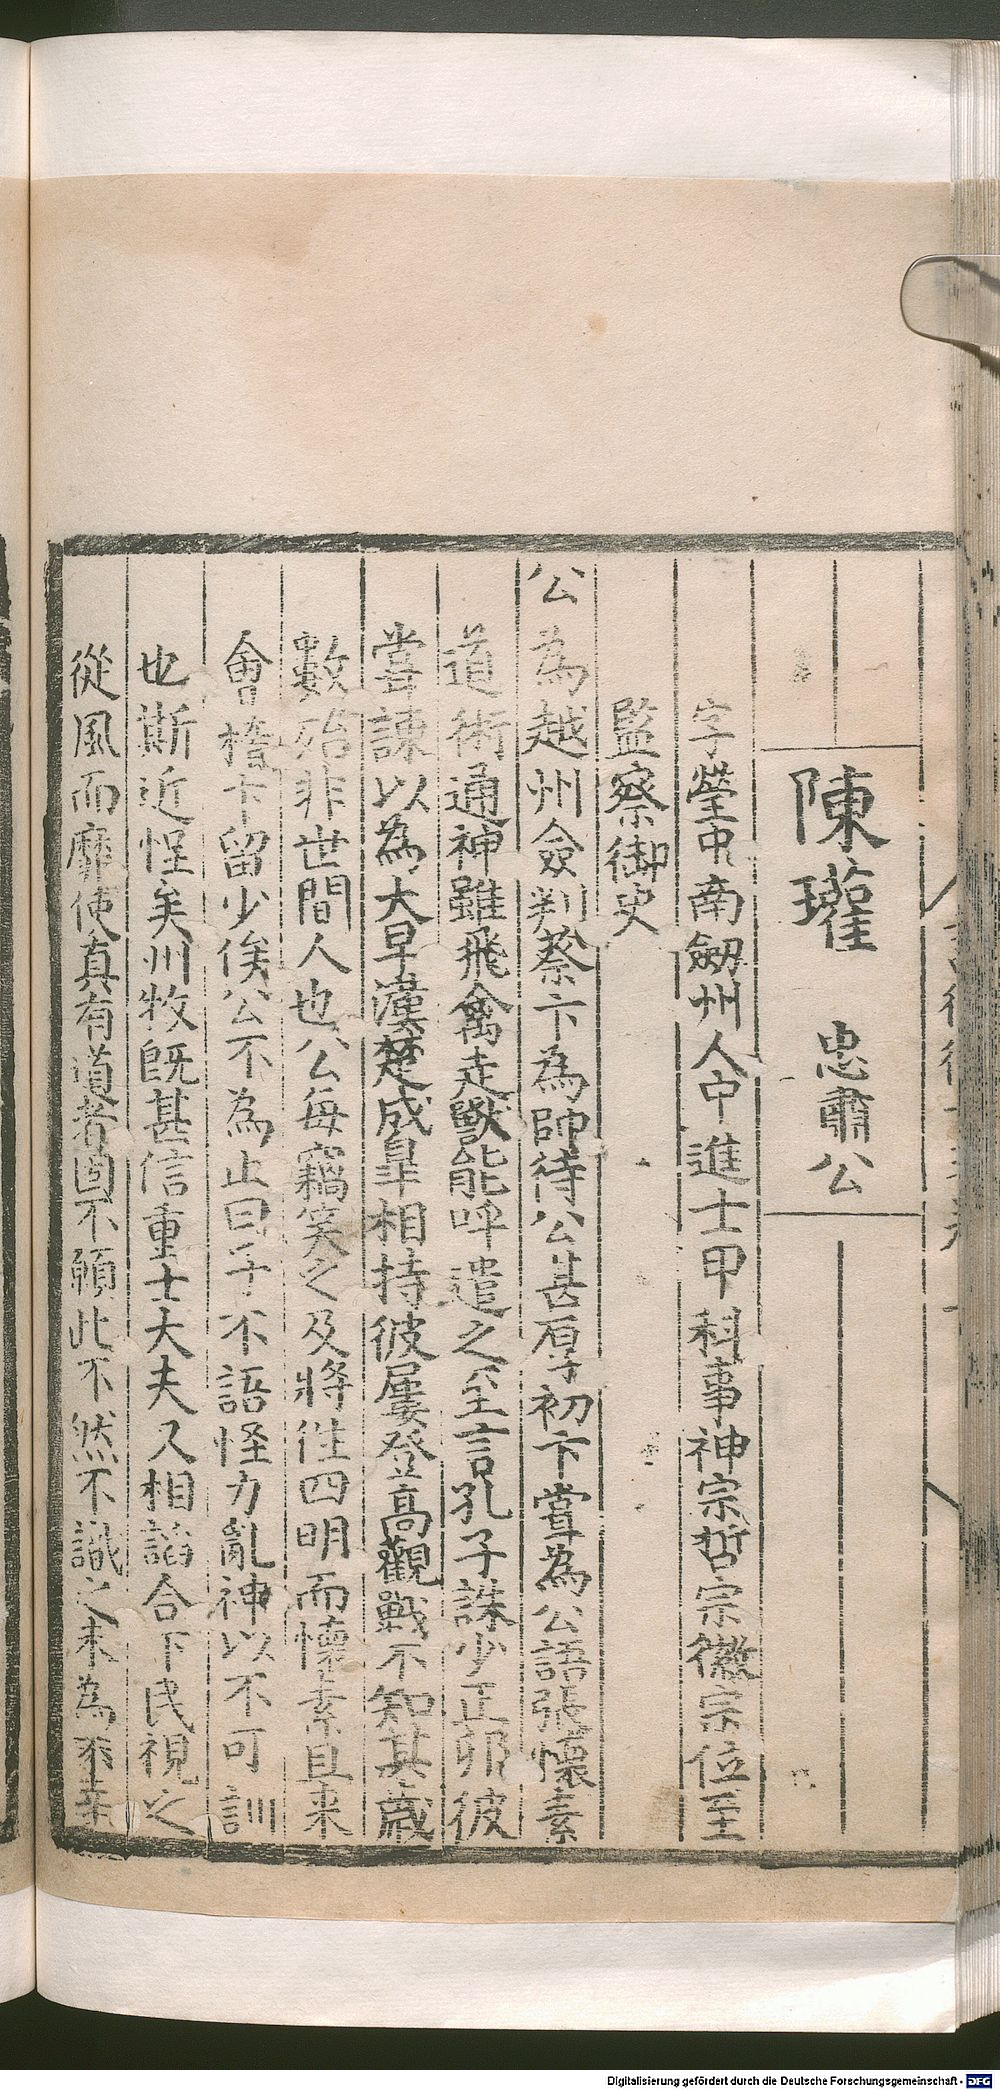 陳瓘 忠肅公
字瑩中南劔州人中進士甲科事神宗哲宗徽宗位至
監察御史
公為越州僉判蔡卞為帥待公甚厚初卞嘗為公語張懷素
道術通神雖飛禽走獸能呼遣之至言孔子誅少正卯彼
嘗諫以為大早漢楚成皐相持彼屢登高觀戰不知其歳
數殆非世間人也公每竊笑之及將徃四明而懷素且来
會稽卞留少俟公不為止曰子不語怪力亂神以不可訓
也斯近怪矣州牧旣甚信重士大夫又相諂合下民視之
從風而靡使真有道者固不願此不然不識之未為不幸
Digitalisierung gefördert durch die Deutsche Forschungsgemeinschaft - DFG